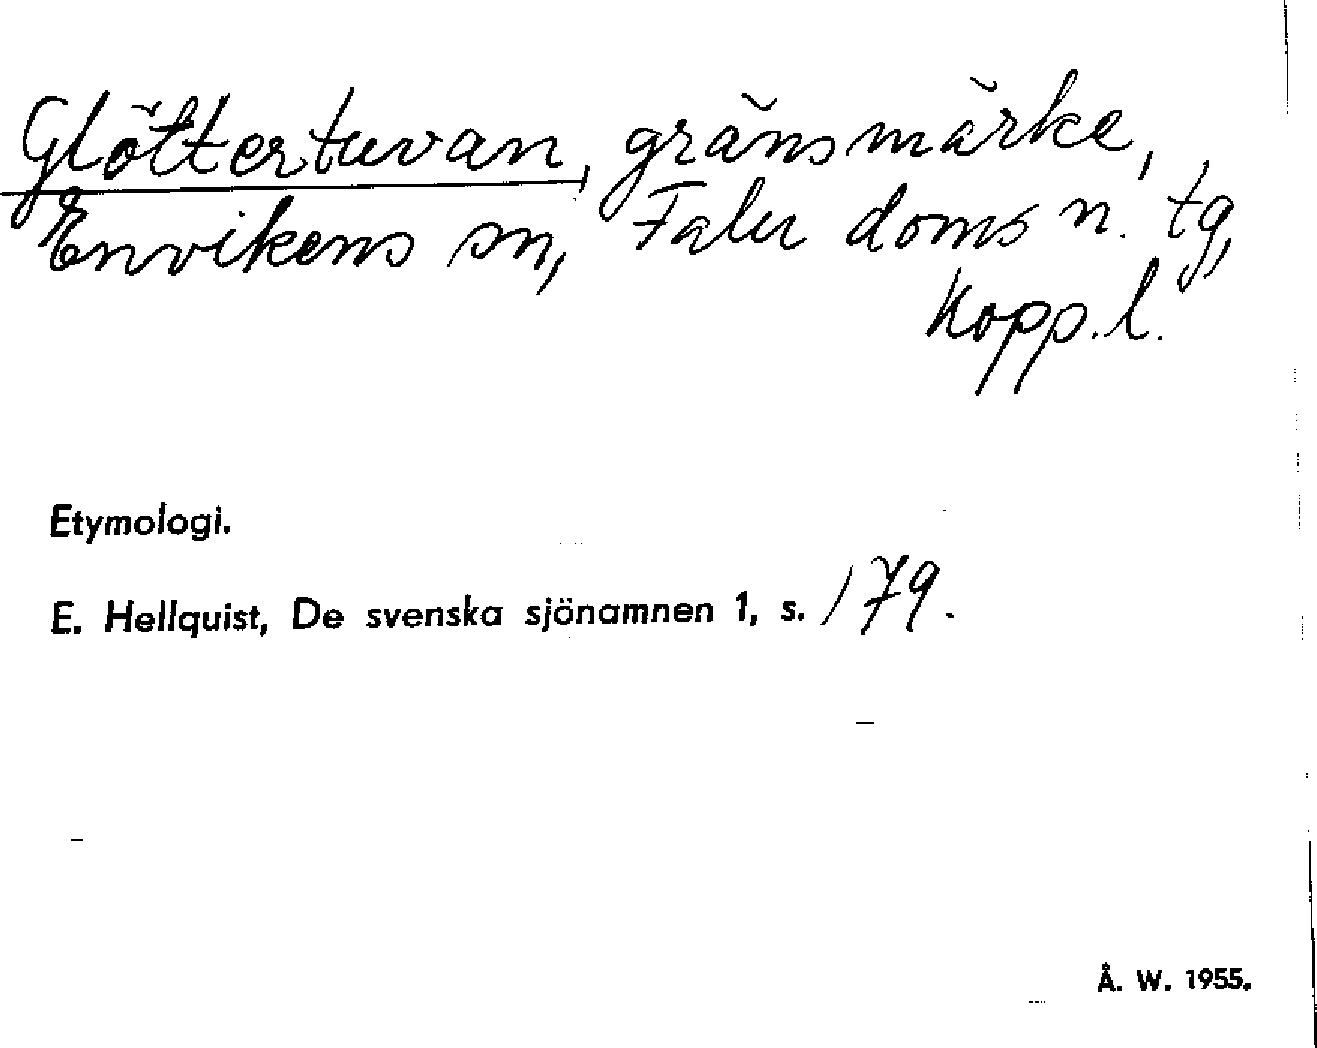 Glöttertuvan, gränsmärke,
Envikens sn, Falu doms n. tg,
Kopp. l.
Etymologi.
E. Hellquist, De svenska sjönamnen 1, s. 179.
Å. W. 1955.